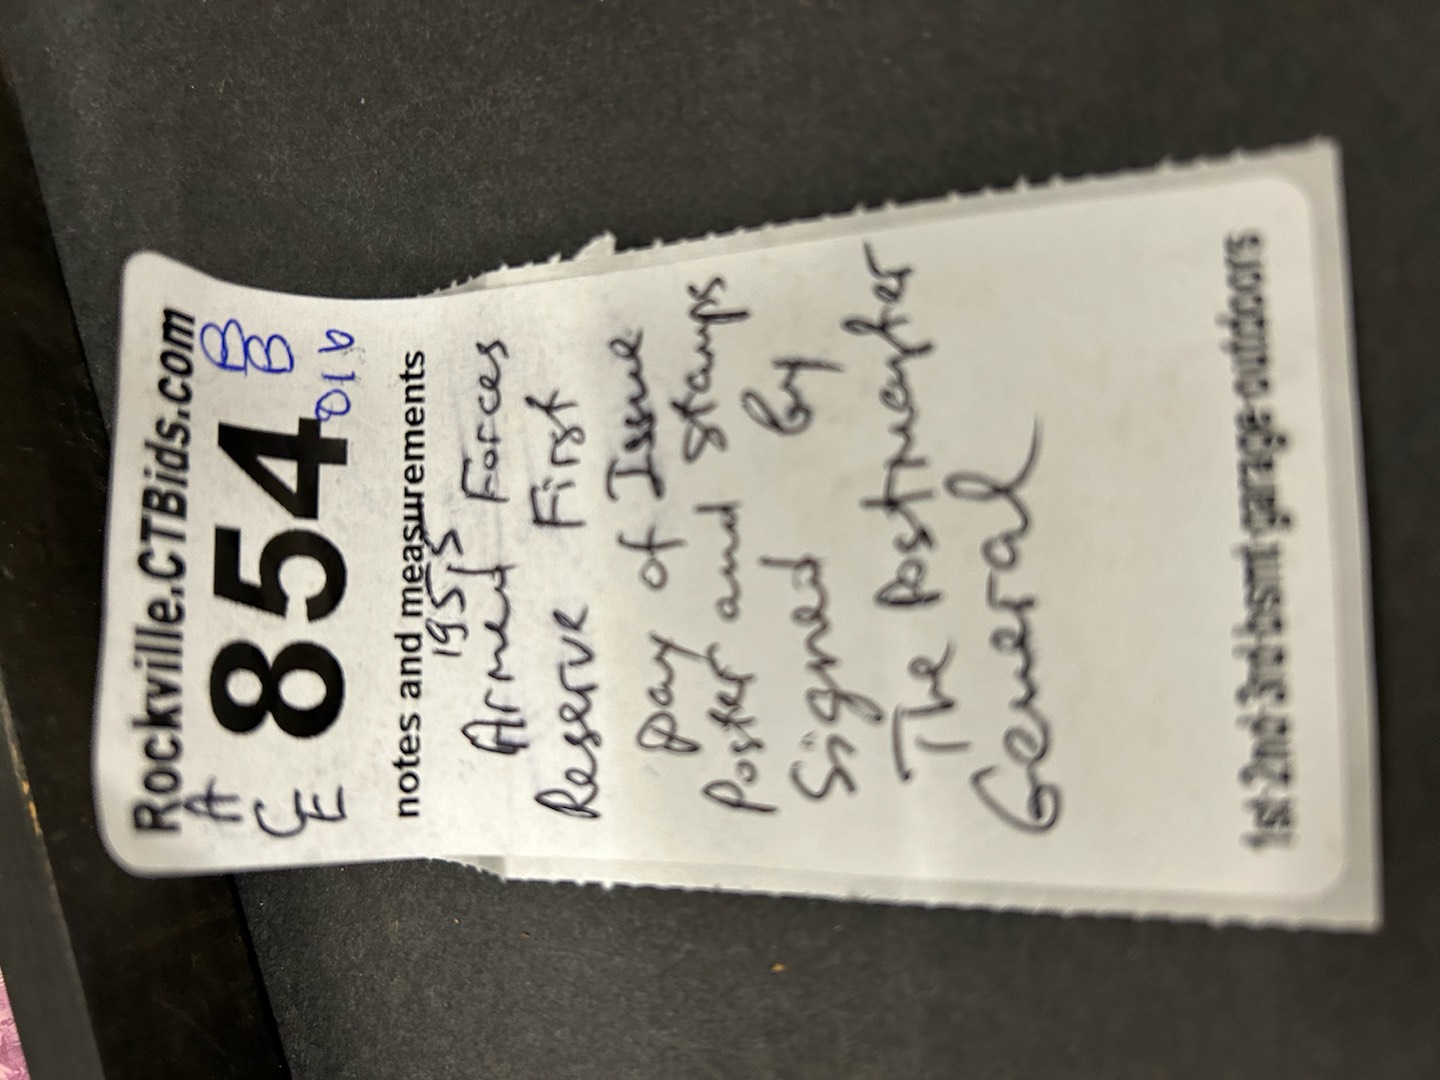 Rockville.CTBids.com
A
CE
854
BB
016
notes and measurements
1955
Armed Forces
Reserve First
Day of Issue
Poster and Stamps
Signed by
The Postmaster
General
1st 2nd 3rd bsmt garage outdoors